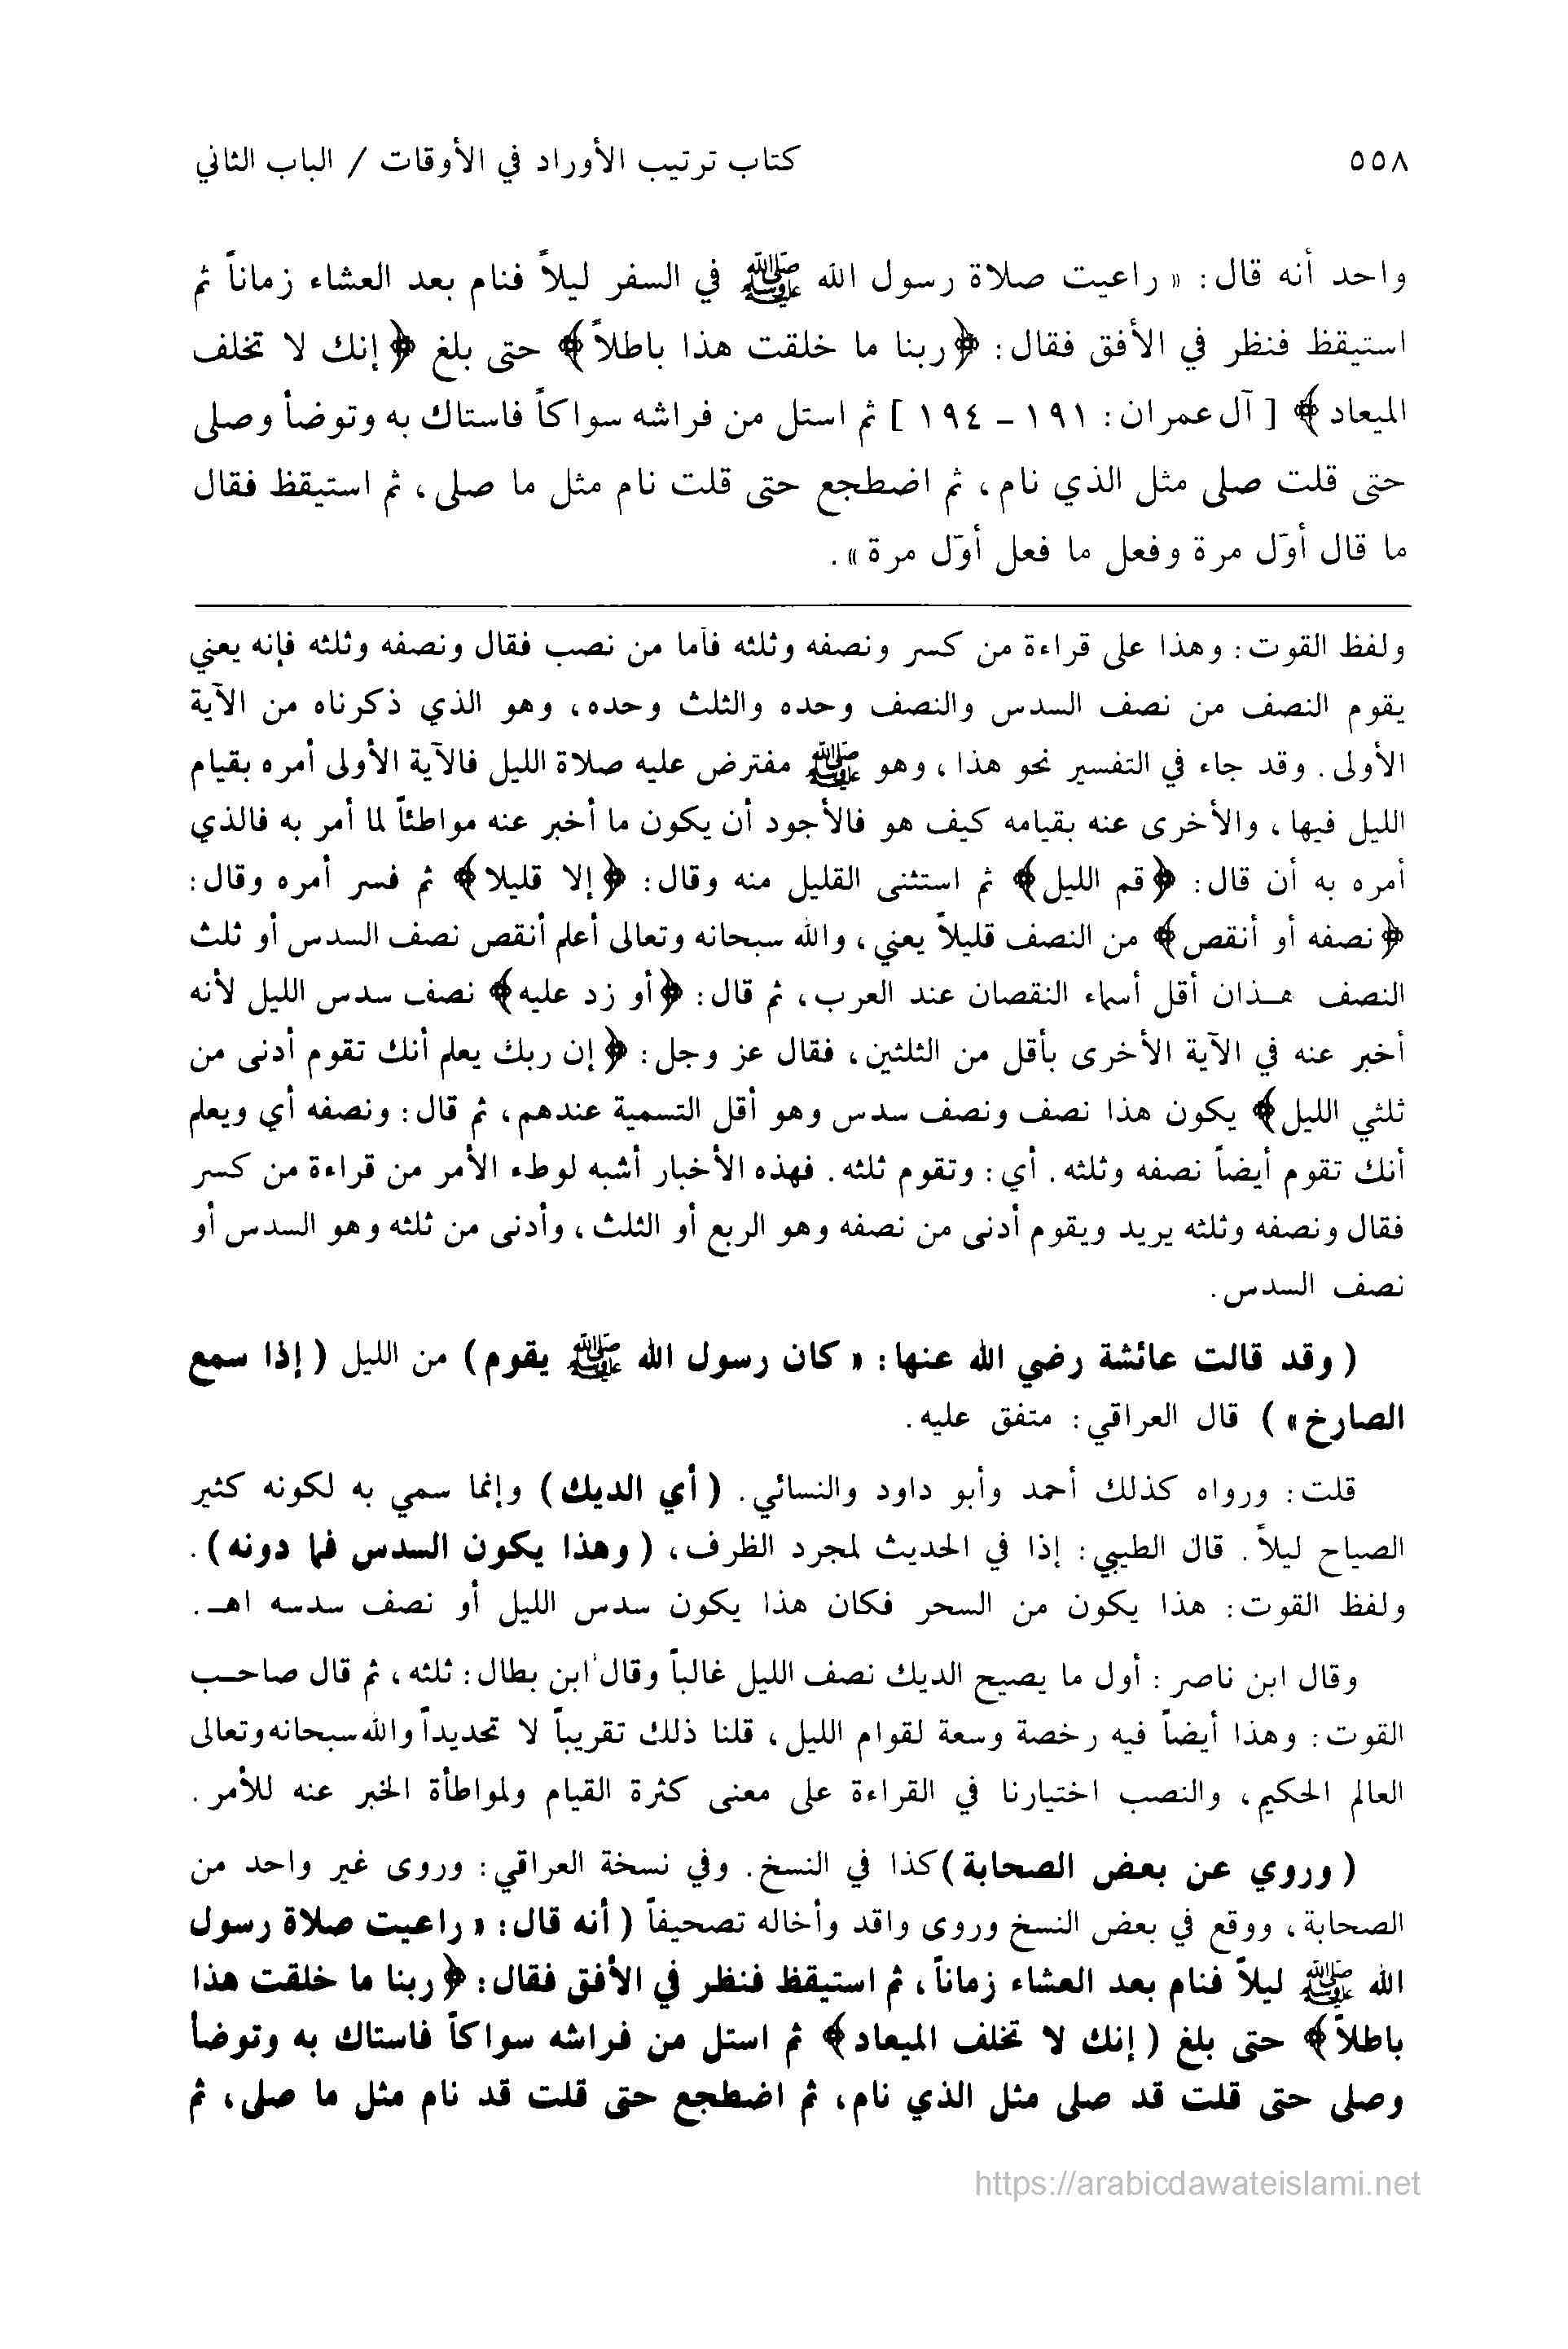 ٥٥٨ كتاب ترتيب الأوراد في الأوقات / الباب الثاني
واحد أنه قال: « راعيت صلاة رسول الله ﷺ في السفر ليلاً فنام بعد العشاء زماناً ثم
استيقظ فنظر في الأفق فقال: ﴿ربنا ما خلقت هذا باطلاً﴾ حتى بلغ ﴿إنك لا تخلف
الميعاد﴾ [ آل عمران: ١٩١ - ١٩٤ ] ثم استل من فراشه سواكاً فاستاك به وتوضأ وصلى
حتى قلت صلى مثل الذي نام، ثم اضطجع حتى قلت نام مثل ما صلى، ثم استيقظ فقال
ما قال أوّل مرة وفعل ما فعل أوّل مرة ».
ولفظ القوت: وهذا على قراءة من كسر ونصفه وثلثه فأما من نصب فقال ونصفه وثلثه فإنه يعني
يقوم النصف من نصف السدس والنصف وحده والثلث وحده، وهو الذي ذكرناه من الآية
الأولى. وقد جاء في التفسير نحو هذا، وهو ﷺ مفترض عليه صلاة الليل فالآية الأولى أمره بقيام
الليل فيها، والأخرى عنه بقيامه كيف هو فالأجود أن يكون ما أخبر عنه مواطئاً لما أمر به فالذي
أمره به أن قال: ﴿قم الليل﴾ ثم استثنى القليل منه وقال: ﴿إلا قليلا﴾ ثم فسر أمره وقال:
﴿نصفه أو أنقص﴾ من النصف قليلاً يعني، والله سبحانه وتعالى أعلم أنقص نصف السدس أو ثلث
النصف هـذان أقل أسماء النقصان عند العرب، ثم قال: ﴿أو زد عليه﴾ نصف سدس الليل لأنه
أخبر عنه في الآية الأخرى بأقل من الثلثين، فقال عز وجل: ﴿إن ربك يعلم أنك تقوم أدنى من
ثلثي الليل﴾ يكون هذا نصف ونصف سدس وهو أقل التسمية عندهم، ثم قال: ونصفه أي ويعلم
أنك تقوم أيضاً نصفه وثلثه. أي: وتقوم ثلثه. فهذه الأخبار أشبه لوطء الأمر من قراءة من كسر
فقال ونصفه وثلثه يريد ويقوم أدنى من نصفه وهو الربع أو الثلث، وأدنى من ثلثه وهو السدس أو
نصف السدس.
( وقد قالت عائشة رضي الله عنها: « كان رسول الله ﷺ يقوم) من الليل ( إذا سمع
الصارخ» ) قال العراقي: متفق عليه.
قلت: ورواه كذلك أحمد وأبو داود والنسائي. ( أي الديك) وإنما سمي به لكونه كثير
الصياح ليلاً. قال الطيبي: إذا في الحديث لمجرد الظرف، ( وهذا يكون السدس فما دونه).
ولفظ القوت: هذا يكون من السحر فكان هذا يكون سدس الليل أو نصف سدسه اهـ.
وقال ابن ناصر : أول ما يصيح الديك نصف الليل غالباً وقال ابن بطال: ثلثه، ثم قال صاحـب
القوت: وهذا أيضاً فيه رخصة وسعة لقوام الليل، قلنا ذلك تقريباً لا تحديداً والله سبحانه وتعالى
العالم الحكيم، والنصب اختيارنا في القراءة على معنى كثرة القيام ولمواطأة الخبر عنه للأمر.
( وروي عن بعض الصحابة) كذا في النسخ. وفي نسخة العراقي: وروى غير واحد من
الصحابة، ووقع في بعض النسخ وروى واقد وأخاله تصحيفاً ( أنه قال: « راعيت صلاة رسول
الله ﷺ ليلاً فنام بعد العشاء زماناً، ثم استيقظ فنظر في الأفق فقال: ﴿ربنا ما خلقت هذا
باطلاً﴾ حتى بلغ ( إنك لا تخلف الميعاد﴾ ثم استل من فراشه سواكاً فاستاك به وتوضأ
وصلى حتى قلت قد صلى مثل الذي نام، ثم اضطجع حتى قلت قد نام مثل ما صلى، ثم
https://arabicdawateislami.net